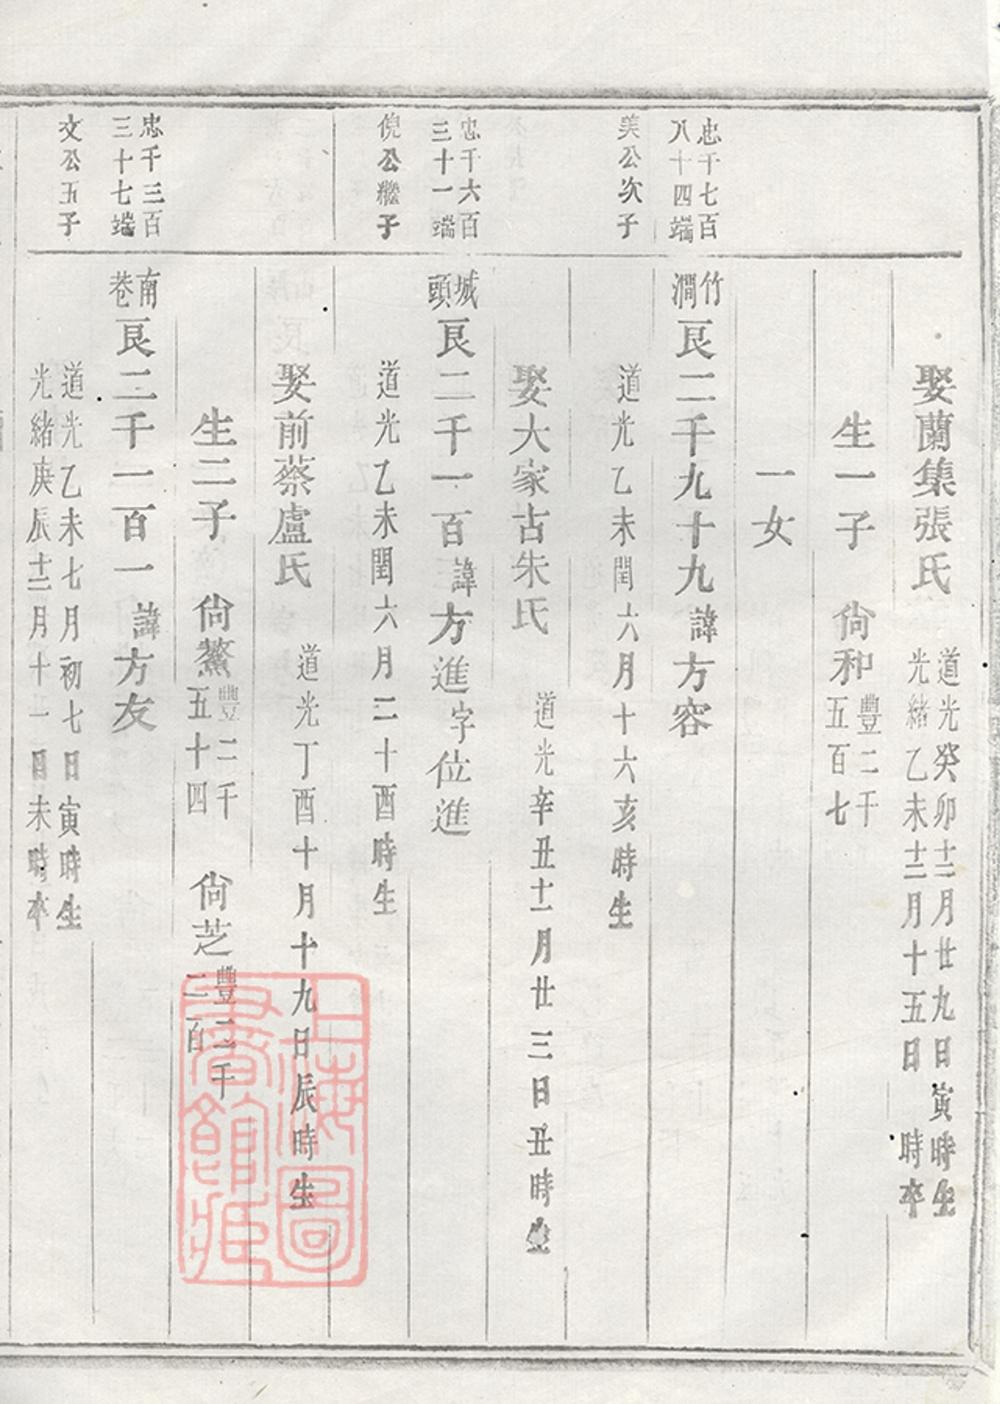 娶蘭集張氏 道光癸卯十二月廿九日寅時生
光緒乙未十二月十五日 時卒
生一子 尙和 豐二千五百七
一女
忠千七百八十四端
竹澗 艮二千九十九 諱方容
美公次子
道光乙未閏六月十六亥時生
娶大家古朱氏 道光辛丑十一月廿三日丑時生
忠千六百三十一端
城頭 艮二千一百 諱方進 字位進
倪公繼子
道光乙未閏六月二十酉時生
娶前蔡盧氏 道光丁酉十月十九日辰時生
生二子 尙鰲 豐二千五十四 尙芝 豐二千二百
忠千三百三十七端
南巷 艮二千一百一 諱方友
文公五子
道光乙未七月初七日寅時生
光緒庚辰十二月十一日未時卒
上海圖書館藏